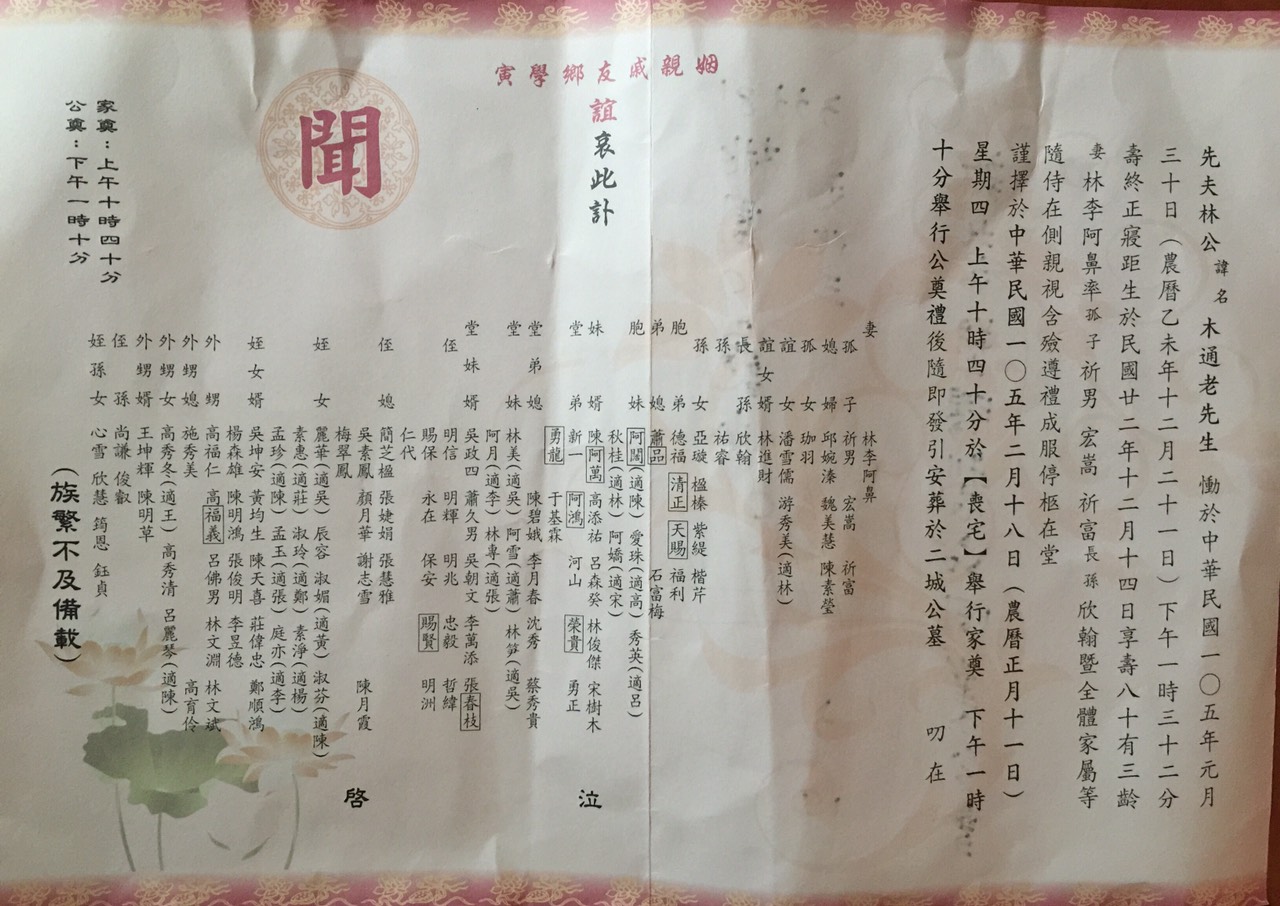 先夫林公諱名木通老先生 慟於中華民國一〇五年元月
三十日（農曆乙未年十二月二十一日）下午一時三十二分
壽終正寢距生於民國廿二年十二月十四日享壽八十有三齡
妻林李阿鼻率孤子祈男 宏嵩 祈富長孫欣翰暨全體家屬等
隨侍在側親視含殮遵禮成服停柩在堂
謹擇於中華民國一〇五年二月十八日（農曆正月十一日）
星期四 上午十時四十分於【喪宅】舉行家奠 下午一時
十分舉行公奠禮後隨即發引安葬於二城公墓 叨在
姻親戚友鄉學寅
誼哀此訃
聞
妻 林李阿鼻
孤子 祈男 宏嵩 祈富
媳婦 邱婉溱 魏美慧 陳素瑩
孤女 珈羽
誼女 潘雪儒 游秀美(適林)
誼女婿 林進財
長孫 欣翰
孫 祐睿
孫女 亞璇 楹榛 紫緹 楷芹
胞弟 德福 清正 天賜 福利
弟媳 蕭品 石富梅
胞妹 阿闖(適陳) 愛珠(適高) 秀英(適呂)
秋桂(適林) 阿嬌(適宋)
妹婿 陳阿萬 高添祐 呂森癸 林俊傑 宋樹木
堂弟 新一 阿鴻 河山 榮貴 勇正
勇龍 于基霖
堂弟媳 陳碧娥 李月春 沈秀 蔡秀貴
堂妹 林美(適吳) 阿雪(適蕭) 林笋(適吳)
阿月(適李) 林專(適張)
堂妹婿 吳政四 蕭久男 吳朝文 李萬添 張春枝
侄 明信 明輝 明兆 忠毅 哲緯
賜保 永在 保安 賜賢 明洲
仁代
侄媳 簡芝楹 張婕娟 張慧雅
吳素鳳 顏月華 謝志雪 陳月霞
梅翠鳳
姪女 麗華(適吳) 辰容 淑媚(適黃) 淑芬(適陳)
素惠(適莊) 淑玲(適鄭) 素淨(適楊)
孟珍(適陳) 孟玉(適張) 庭亦(適李)
姪女婿 吳坤安 黃均生 陳天喜 莊偉忠 鄭順鴻
楊森雄 陳明鴻 張俊明 李昱德
外甥 高福仁 高福義 呂佛男 林文淵 林文斌
外甥媳 施秀美 高育伶
外甥女 高秀冬(適王) 高秀清 呂麗琴(適陳)
外甥婿 王坤輝 陳明草
侄孫 尚謙 俊叡
姪孫女 心雪 欣慧 筠恩 鈺貞
泣
啓
（族繁不及備載）
家奠：上午十時四十分
公奠：下午一時十分